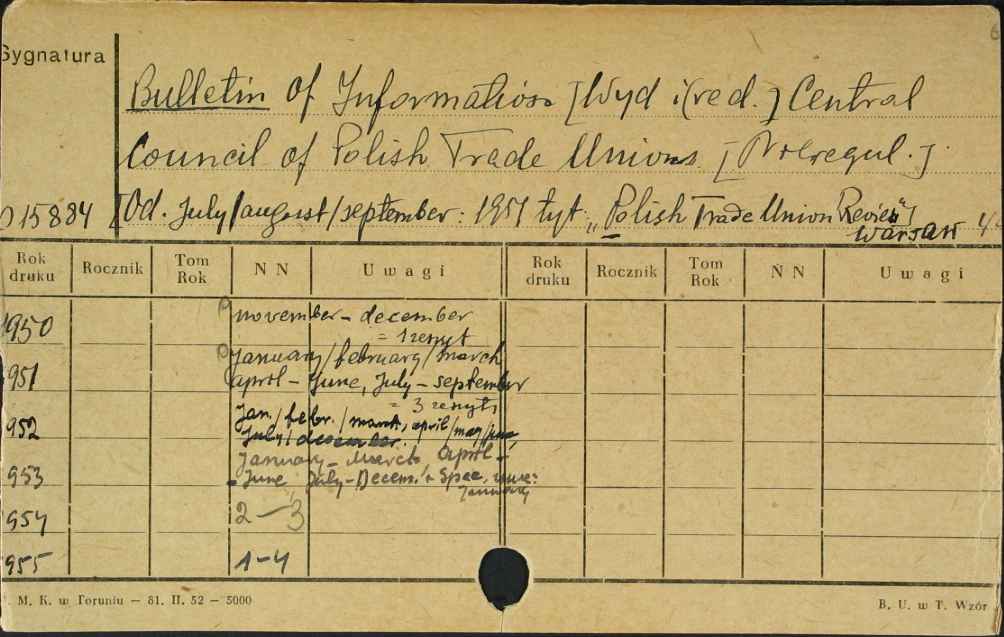 Sygnatura
Bulletin of Information [Wyd i(red.] Central
Council of Polish Trade Unions. [Nieregul.].
015884 [Od. July/august/september: 1951 tyt. „Polish Trade Union Review"]
Warsaw 4°
Rok druku Rocznik Tom Rok NN Uwagi Rok druku Rocznik Tom Rok NN Uwagi
1950 november – december
= 1 zeszyt
january/february/march
951 april – June, July – september
= 3 zeszyty
952 Jan./febr./march, april/may/june,
July/december.
January – March April –
953 – June July – Decem. + Spec. issue:
January
954 2–3
955 1–4
. M. K. w Toruniu — 81. II. 52 — 5000 B. U. w T. Wzór